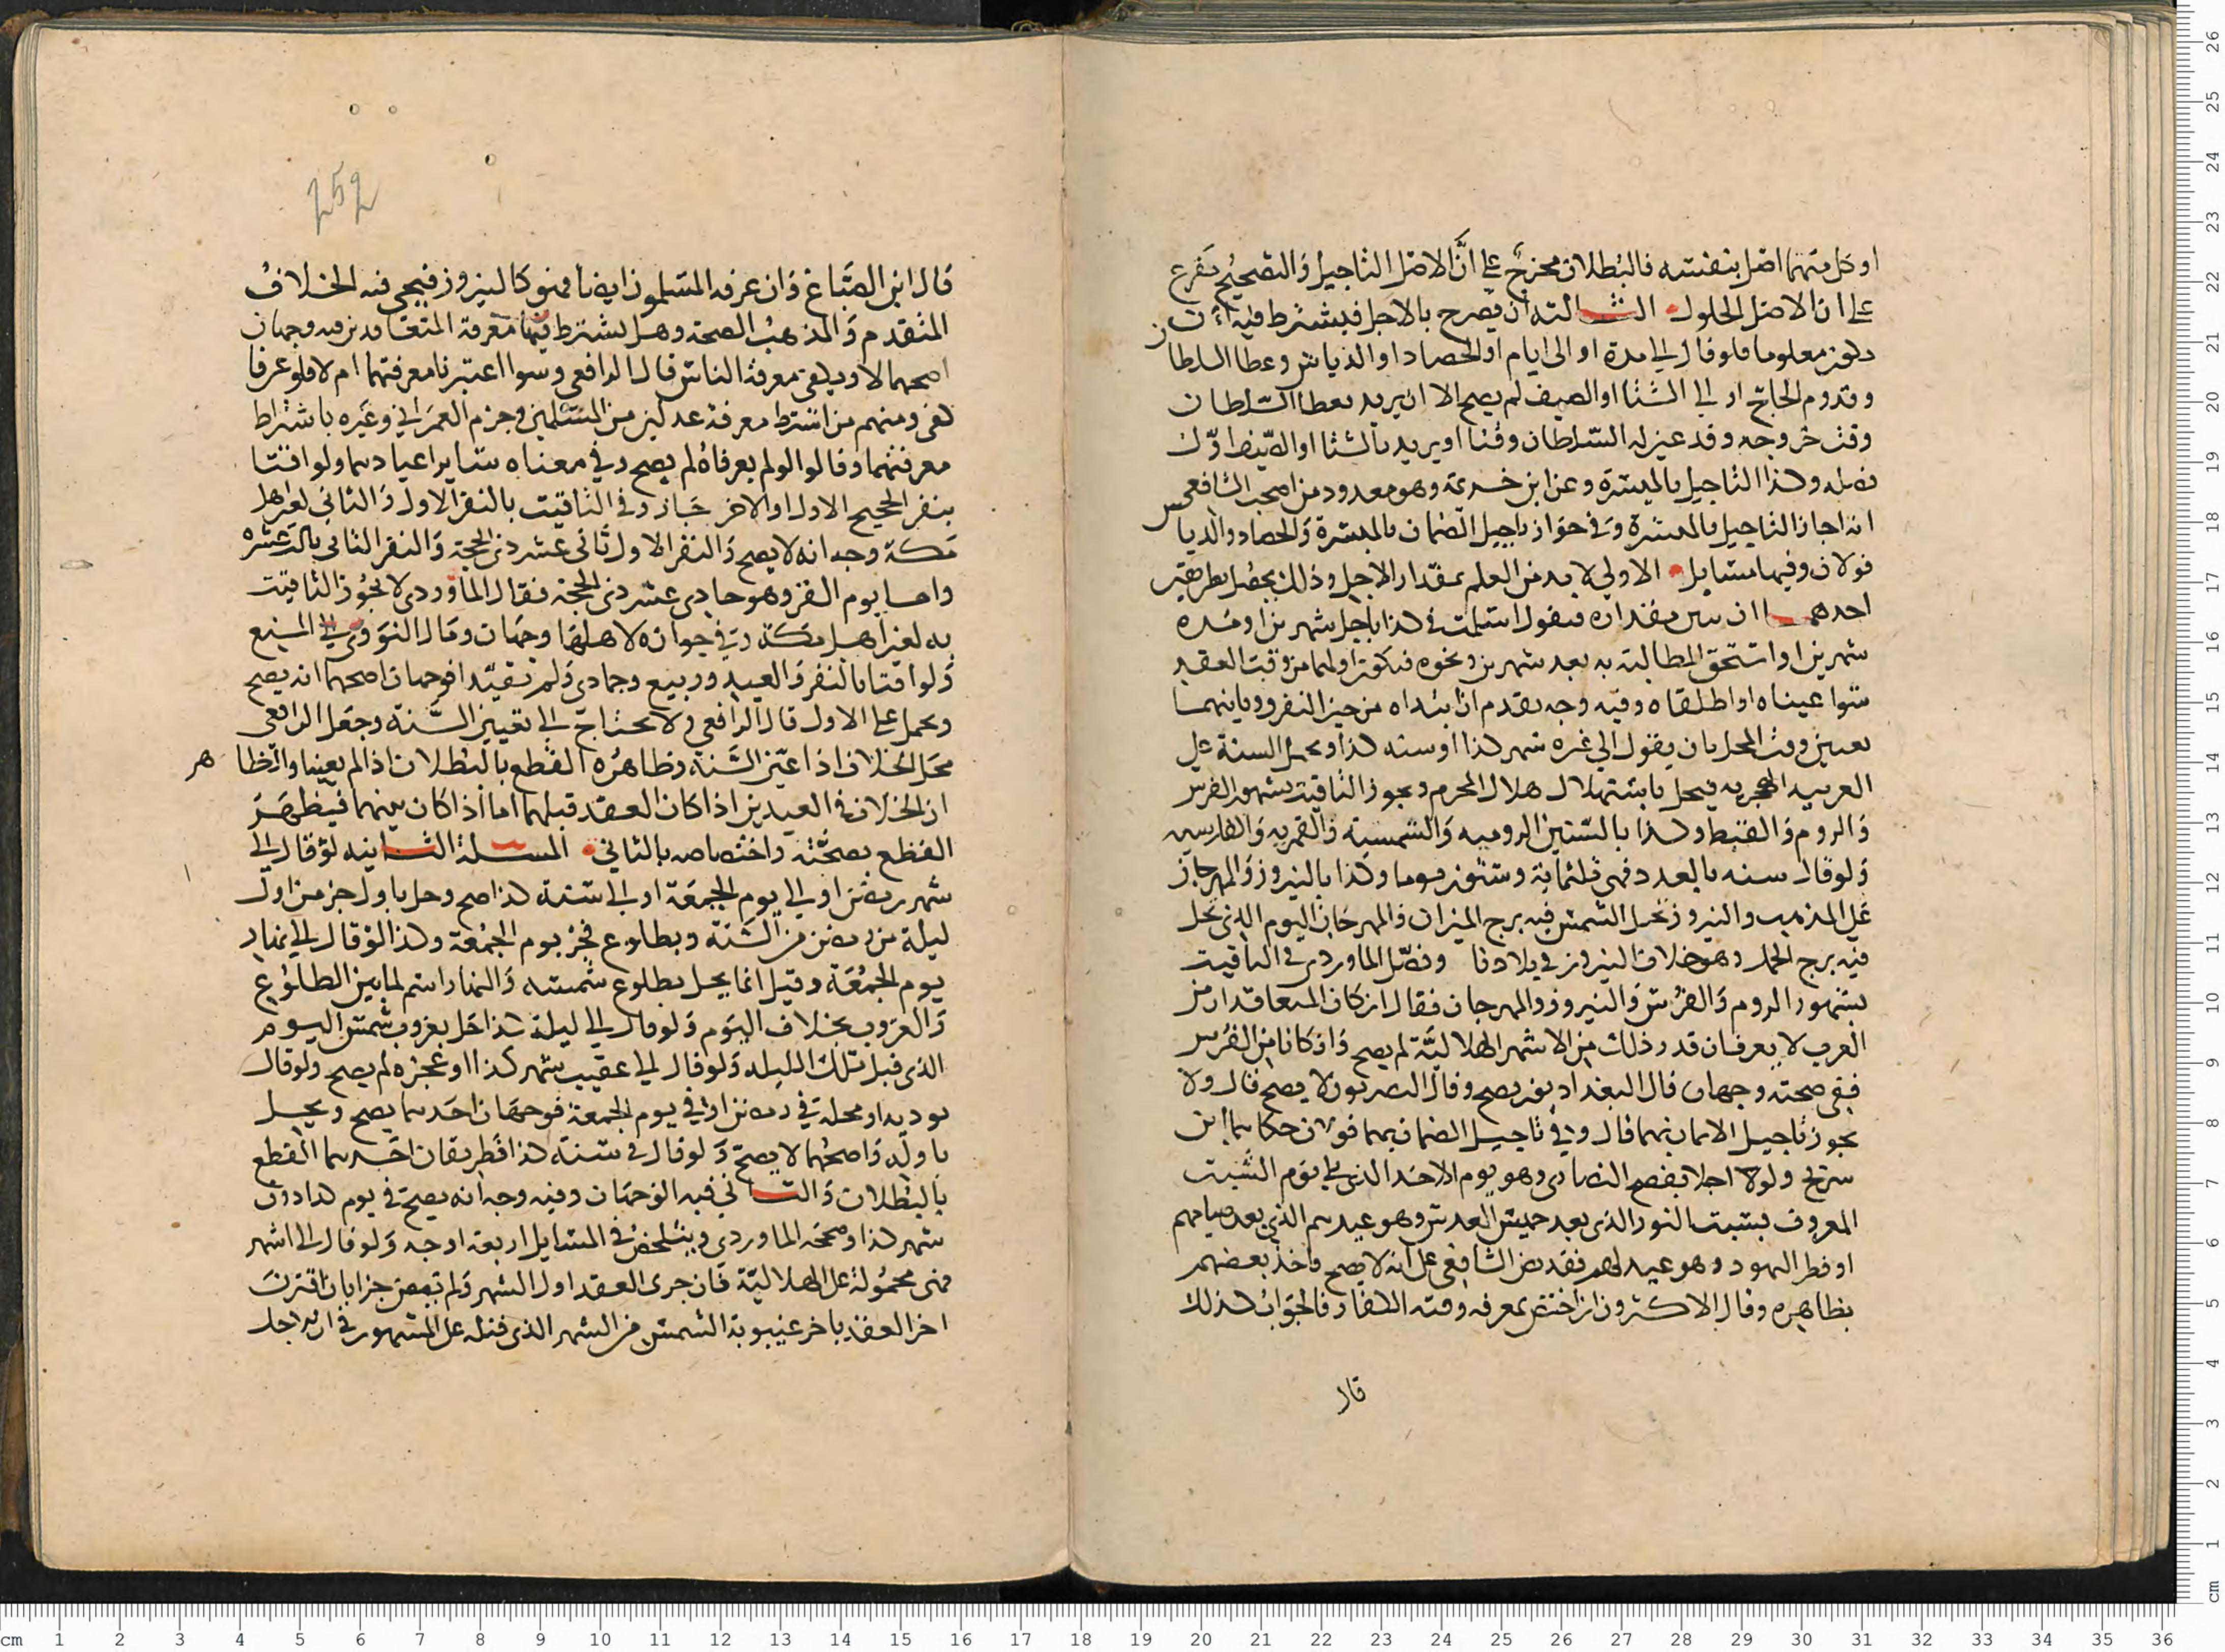 او كل منهما اصل بنفسه فالبطلان مخرج على ان الاصل التاجيل والتصحيح مفرع
على ان الاصل الحلول الثالثة ان يصرح بالاجل فيشترط فيه ان
يكون معلوما فلو قال الى مدة او الى ايام او الحصاد او الدياس وعطا السلطان
وقدوم الحاج او الى الشتا او الصيف لم يصح الا ان يريد بعطا السلطان
وقت خروجه وقد عين له السلطان وقتا او يريد بالشتا او الصيف اول
فصله وكذا التاجيل بالميسرة وعن ابن خزيمة وهو معدود من اصحاب الشافعي
انه اجاز التاجيل بالميسرة وفي جواز تاجيل الضمان بالميسرة والحصاد والدياس
قولان وفيها مسايل الاولى لا بد من العلم بمقدار الاجل وذلك يحصل بطريقين
احدهما ان يبين مقداره فيقول اسلمت في كذا باجل شهرين او مدة
شهرين او استحق المطالبة به بعد شهرين ونحوه فيكون اولهما من وقت العقد
سوا عيناه او اطلقاه وفيه وجه يقدم ان ابتداه من حين التفرق وثانيهما
تعيين وقت المحل بان يقول الى غرة شهر كذا او سنه كذا ويحمل السنة على
العربيه الهجريه فيحل باستهلال هلال المحرم ويجوز التاقيت بشهور الفرس
والروم والقبط وكذا بالسنين الروميه والشمسية والقمريه والفارسيه
ولو قال سنه بالعدد فهي ثلثماية وستون يوما وكذا بالنيروز والمهرجان
على المذهب والنيروز تحل الشمس فيه برج الميزان والمهرجان اليوم الذي تحل
فيه برج الحمل وهو خلاف النيروز في بلادنا وفصل الماوردي في التاقيت
بشهور الروم والفرس والنيروز والمهرجان فقال ان كان المتعاقدان من
العرب لا يعرفان قدر ذلك من الاشهر الهلالية لم يصح وان كانا من الفرس
ففي صحته وجهان قال البغداديون يصح وقال البصريون لا يصح قال ولا
يجوز تاجيل الاثمان بهما قال وفي تاجيل الضمان بهما قولان حكاهما ابن
سريج ولو اجلا بفصح النصارى وهو يوم الاحد الذي يلي يوم السبت
المعروف بسبت النور الذي بعد خميس العدس وهو عيدهم الذي بعد صيامهم
او فطر اليهود وهو عيد لهم فقد نص الشافعي على انه لا يصح فاخذ بعضهم
بظاهره وقال الاكثرون ان اختص بمعرفه وقته الكفار فالجواب كذلك
قال
252
قال ابن الصباغ وان عرفه المسلمون ايضا فهو كالنيروز فيجي فيه الخلاف
المتقدم والمذهب الصحة وهل يشترط فيهما معرفة المتعاقدين فيه وجهان
اصحهما لا ويكفي معرفة الناس قال الرافعي وسوا اعتبرنا معرفتهما ام لا فلو عرفا
كفى ومنهم من اشترط معرفة عدلين من المسلمين وجزم العمراني وغيره باشتراط
معرفتهما وقالوا لو لم يعرفاه لم يصح وفي معناه ساير اعيادهما ولو اقتا
بنفر الحجيج الاول او الاخر جاز وفي التاقيت بالنفر الاول والثاني لغير اهل
مكة وجه انه لا يصح والنفر الاول ثاني عشر ذي الحجة والنفر الثاني ثالث عشره
واما يوم القر وهو حادى عشر ذي الحجة فقال الماوردي لا يجوز التاقيت
به لغير اهل مكة وفي جوازه لاهلها وجهان وقال النووي في المنع
ولو اقتا بالنفر والعيد وربيع وجمادى ولم تقيد فوجهان اصحهما انه يصح
ويحمل على الاول قال الرافعي ولا يحتاج الى تعيين السنة وجعل الرافعي
محل الخلاف اذا عين السنة وظاهره القطع بالبطلان اذا لم يعينا والظاهر
ان الخلاف في العيدين اذا كان العقد قبلهما اما اذا كان بينهما فيظهر
القطع بصحته واختصاصه بالثاني المسلة الثانيه لو قال الى
شهر رمضان او الى يوم الجمعة او الى سنة كذا صح وحل باول جز من اول
ليلة من رمضان من السنة وبطلوع فجر يوم الجمعة وكذا لو قال الى نهار
يوم الجمعة وقيل انما يحل بطلوع شمسه والنهار اسم لما بين الطلوع
والغروب بخلاف اليوم ولو قال الى ليلة كذا حل بغروب شمس اليوم
الذي قبل تلك الليله ولو قال الى عقيب شهر كذا او عجزه لم يصح ولو قال
يوديه او محله في رمضان او في يوم الجمعة فوجهان احدهما يصح ويحل
باوله واصحهما لا يصح ولو قال في سنة كذا فطريقان احدهما القطع
بالبطلان والثاني فيه الوجهان وفيه وجه انه يصح في يوم كذا دون
شهر كذا وصححه الماوردي ويتلخص في المسايل اربعة اوجه ولو قال الى اشهر
فهي محمولة على الهلالية فان جرى العقد اول الشهر ولم تمض جزا بان اقترن
اخر العقد باخر غيبوبة الشمس من الشهر الذي قبله على المشهور في انه اجل